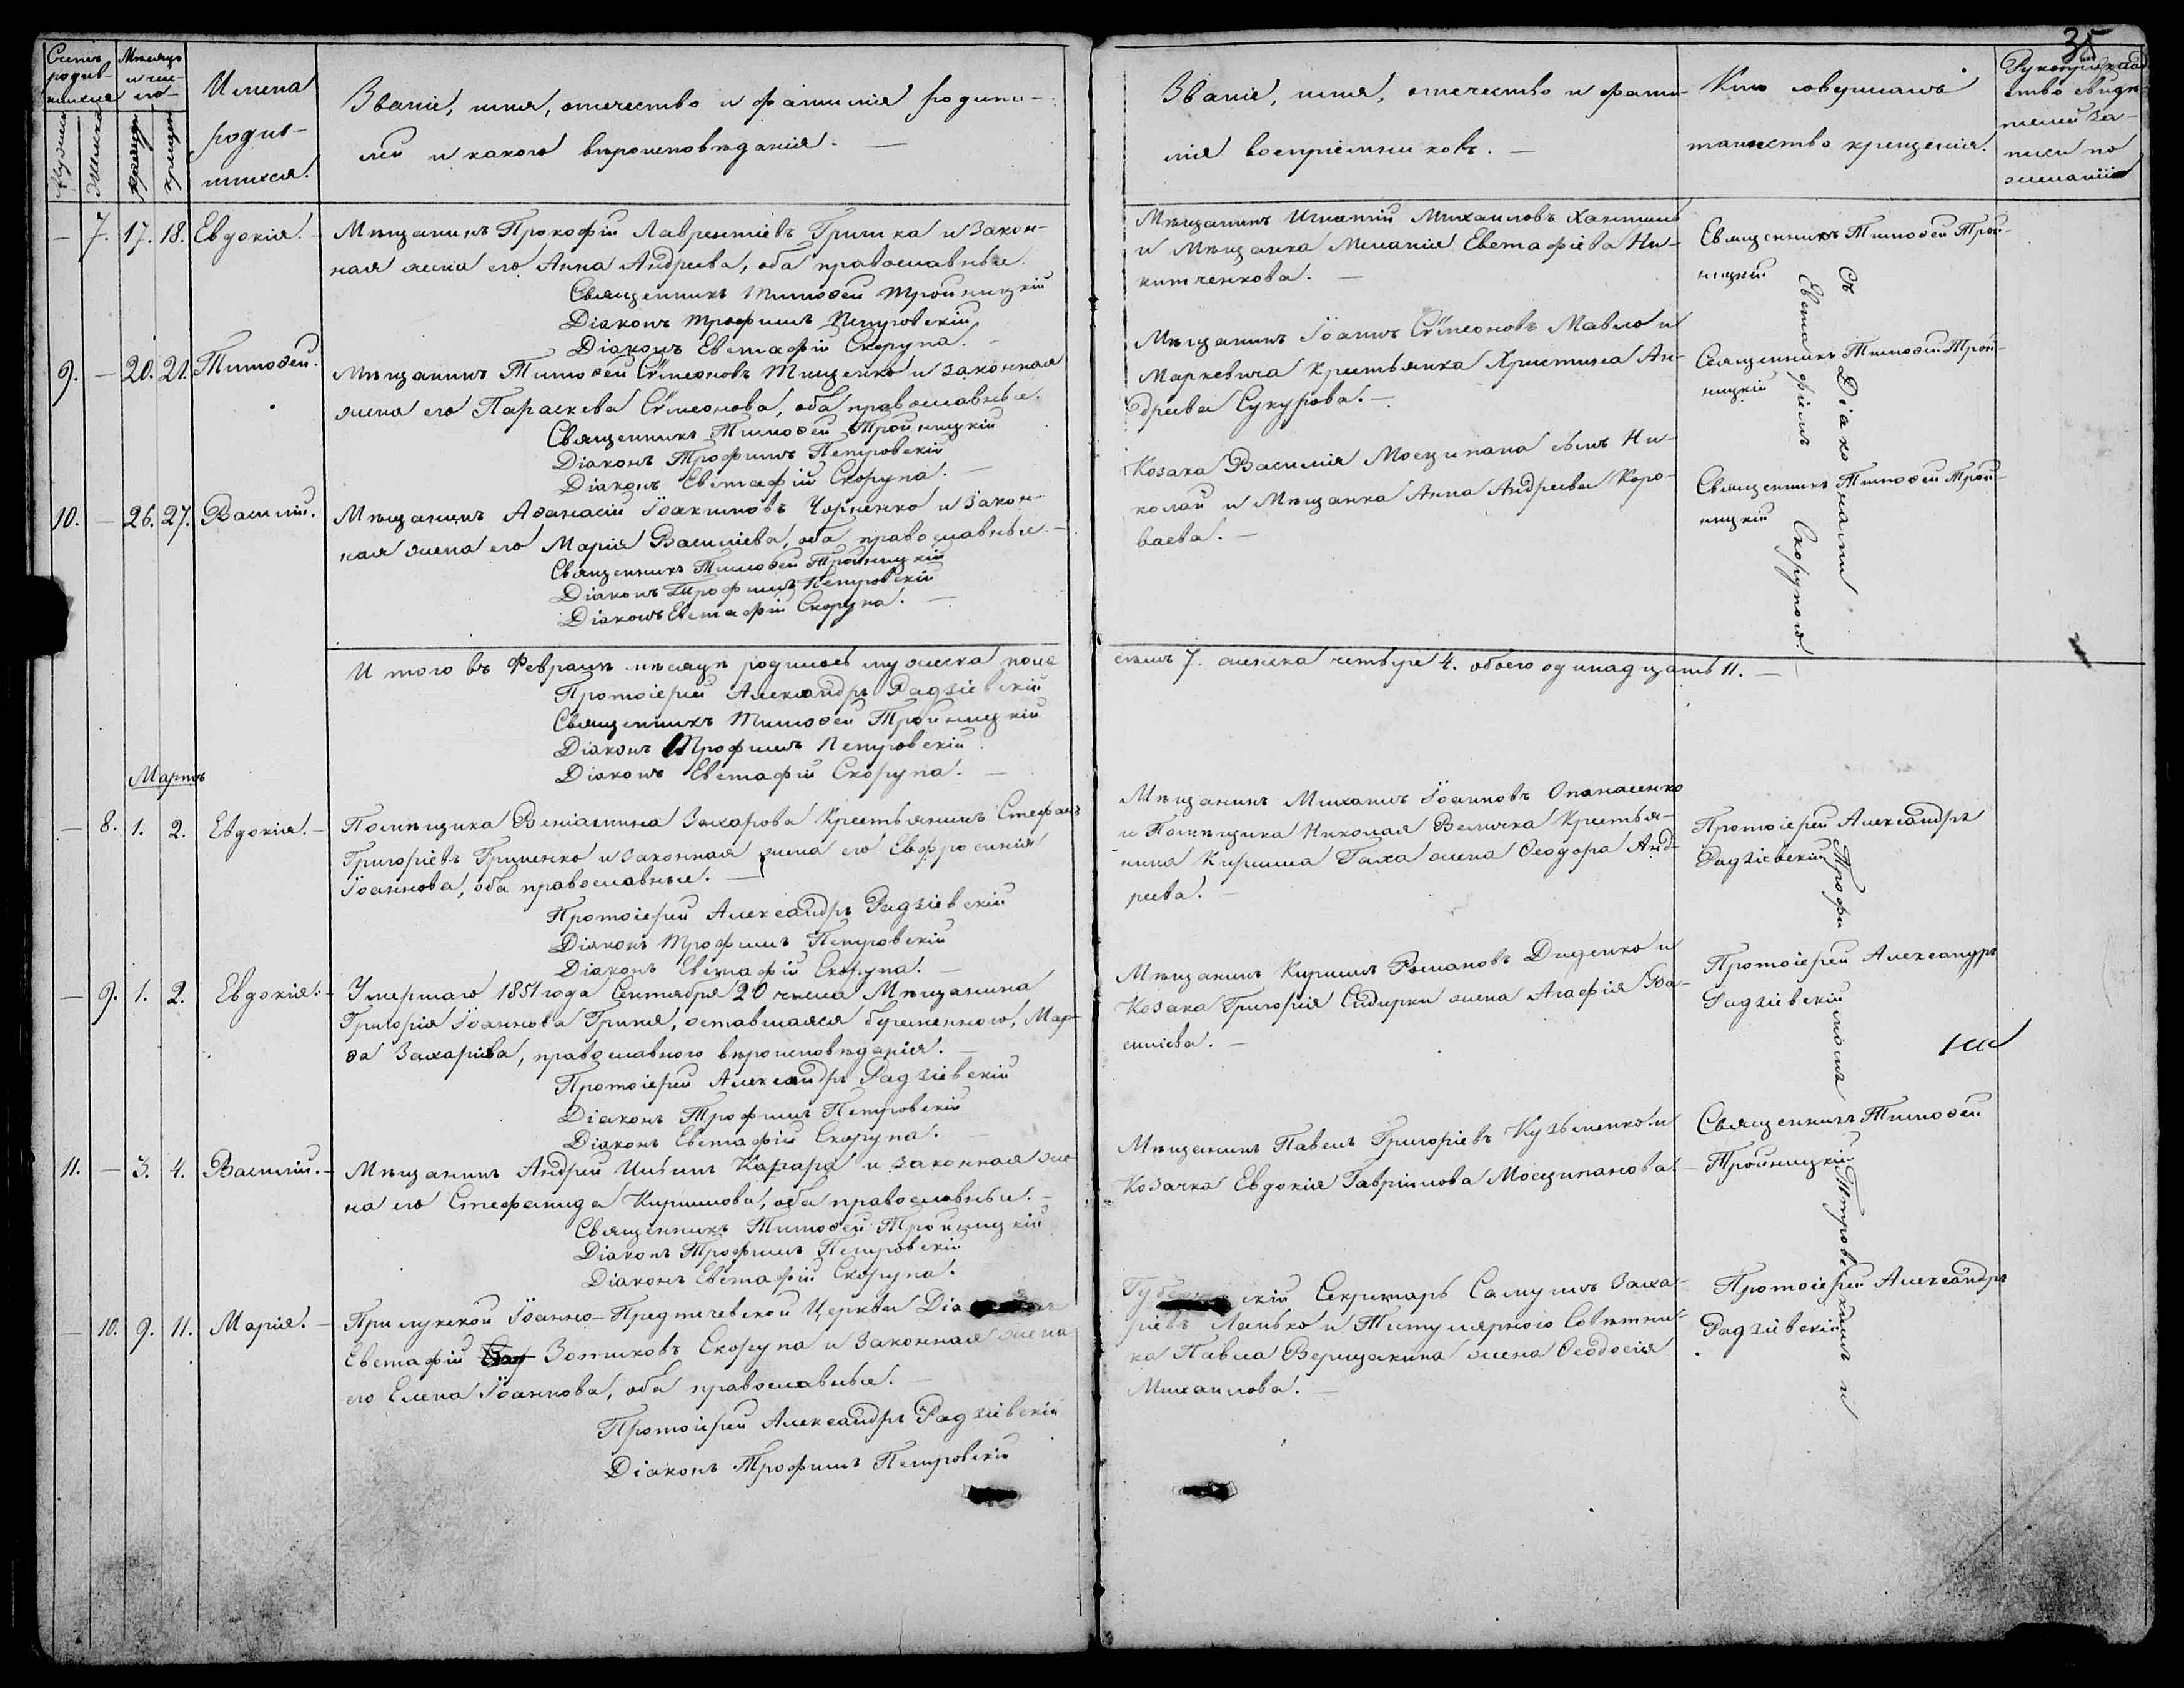 35
Счетъ родив-
шихся
Мѣсяцъ
и чи-
сло
Имена
родив-
шихся.
Званіе, имя, отечество и фамилія родите-
лей и какого вѣроисповѣданія. —
Званіе, имя, отечество и фами-
лія воспріемниковъ. —
Кто совершалъ
таинство крещенія.
Рукоприклад
ство свидѣ-
телей за-
писи по
желанію
— 7. 17. 18. Евдокія. —
Мѣщанинъ Прокофій Лаврентіевъ Гришка и закон-
ная жена его Анна Андреева, оба православные.
Священникъ Тимоѳей Тройницкій
Діаконъ Трофимъ Петровскій
Діаконъ Евстафій Скорупа. —
Мѣщанинъ Игнатій Михаиловъ
и Мѣщанка Меланія Евстафіева Ни-
китченкова. —
Священникъ Тимоѳей Трой-
ницкій
9. — 20. 21. Тимоѳей.
Мѣщанинъ Тимоѳей Сѵмеоновъ Тищенко и законная
жена его Параскева Сѵмеонова, оба православные.
Священникъ Тимоѳей Тройницкій
Діаконъ Трофимъ Петровскій
Діаконъ Евстафій Скорупа. —
Мѣщанинъ Іоаннъ Сѵмеоновъ Мавло и
Маркевича крестьянка Христина Ан-
дреева Сукурова. —
Священникъ Тимоѳей Трой-
ницкій
10. — 26. 27. Василій.
Мѣщанинъ Аѳанасій Іоакимовъ Черненко и закон-
ная жена его Марія Василіева, оба православные. —
Священникъ Тимоѳей Тройницкій
Діаконъ Трофимъ Петровскій
Діаконъ Евстафій Скорупа. —
Козака Василія Мосципана сынъ Ни-
колай и Мѣщанка Анна Андреева Коро-
ваева. —
Священникъ Тимоѳей Трой-
ницкій
Съ Діаконами
Евстафіемъ Скорупою. —
Итого въ Февралѣ мѣсяцѣ родилось мужеска пола
семь 7. женска четыре 4. обоего одинадцать 11. —
Протоіерей Александръ Радзіевскій
Священникъ Тимоѳей Тройницкій
Діаконъ Трофимъ Петровскій
Діаконъ Евстафій Скорупа. —
Мартъ
— 8. 1. 2. Евдокія. —
Помѣщика Веніамина Захарова Крестьянинъ Стефанъ
Григоріевъ Гриценко и законная жена его Евфросинія
Іоаннова, оба православные. —
Протоіерей Александръ Радзіевскій
Діаконъ Трофимъ Петровскій
Діаконъ Евстафій Скорупа. —
Мѣщанинъ Михаилъ Іоанновъ Опанасенко
и Помѣщика Николая Велична Крестья-
нина Кирилла Гаха жена Ѳеодора Анд-
реева. —
Протоіерей Александръ
Радзіевскій
— 9. 1. 2. Евдокія. —
Умершаго 1851 года Сентября 20 числа Мѣщанина
Григорія Іоаннова Гриня, оставшаяся беременною, Мар-
ѳа Захаріева, православного вѣроисповѣданія. —
Протоіерей Александръ Радзіевскій
Діаконъ Трофимъ Петровскій
Діаконъ Евстафій Скорупа. —
Мѣщанинъ Кириллъ Романовъ Диденко и
Козака Григорія Сидирки жена Агафія Ва-
силіева. —
Протоіерей Александръ
Радзіевскій
11. — 3. 4. Василій. —
Мѣщанинъ Андрей Ильинъ Карара и законная же-
на его Стефанида Кириллова, оба православные. —
Священникъ Тимоѳей Тройницкій
Діаконъ Трофимъ Петровскій
Діаконъ Евстафій Скорупа.
Мѣщанинъ Павелъ Григоріевъ Кузьменко и
Козачка Евдокія Гавріилова Мосципанова. —
Священникъ Тимоѳей
Тройницкій
— 10. 9. 11. Марія. —
Прилукской Іоанно-Предтичевской Церкви
Евстафій Зотиковъ Скорупа и законная жена
его Елена Іоаннова, оба православные. —
Протоіерей Александръ Радзіевскій
Діаконъ Трофимъ Петровскій
Секретарь Самуилъ Заха-
ріевъ Лалько и Титулярного Совѣтни-
ка Павла Верещакина жена Ѳеодосія
Михаилова. —
Протоіерей Александръ
Радзіевскій
Трофимомъ Петровскимъ и